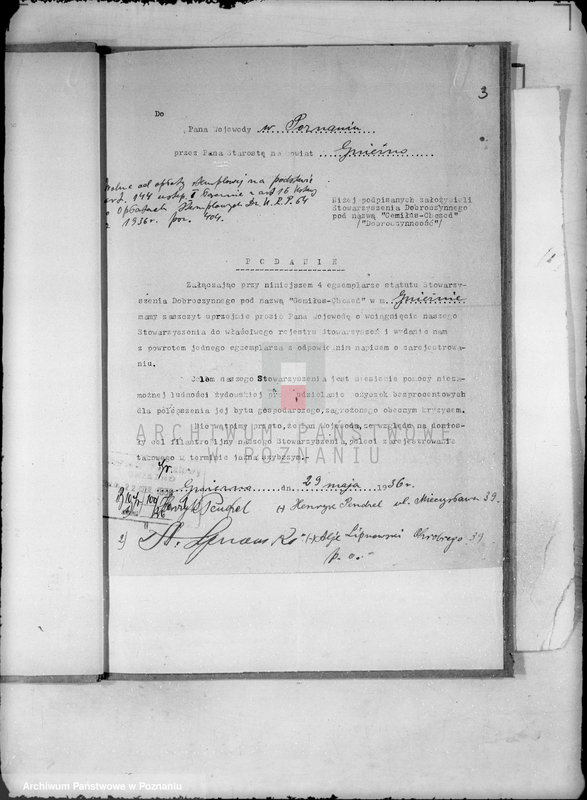 3
Do
Pana Wojewody w Poznaniu
przez Pana Starostę na powiat Gnieźno
Wolne od opłaty stemplowej na podstawie
art. 144 ustęp
opłatach stemplowych Dz. U. R. P. 64
1936 r. poz. 404.
Niżej podpisanych założycieli
Stowarzyszenia Dobroczynnego
pod nazwą "Gemiłus-Chesed"
/"Dobroczynność"/
PODANIE
Załączając przy niniejszem 4 egzemplarze statutu Stowarzy-
szenia Dobroczynnego pod nazwą "Gemiłus-Chesed" w m. Gnieźnie
mamy zaszczyt uprzejmie prosić Pana Wojewodę o wciągnięcie naszego
Stowarzyszenia do właściwego rejestru Stowarzyszeń i wydanie nam
z powrotem jednego egzemplarza z odpowiednim napisem o zarejestrowa-
niu.
Celem naszego Stowarzyszenia jest niesienie pomocy nieza-
możnej ludności żydowskiej przez udzielanie pożyczek bezprocentowych
dla polepszenia jej bytu gospodarczego, zagrożonego obecnym kryzysem.
Nie wątpimy przeto, że Pan Wojewoda, ze względu na donios-
ły cel filantropijny naszego Stowarzyszenia, poleci zarejestrowanie
takowego w terminie jaknajszybszym.-
ARCHIWUM PAŃSTWOWE
W POZNANIU
dn. 29 maja 1936 r.
Henryk Pendel (-) Henryk Pendel ul. Mieczysława 39.
2) Lipnowski Chrobrego 39
Archiwum Państwowe w Poznaniu